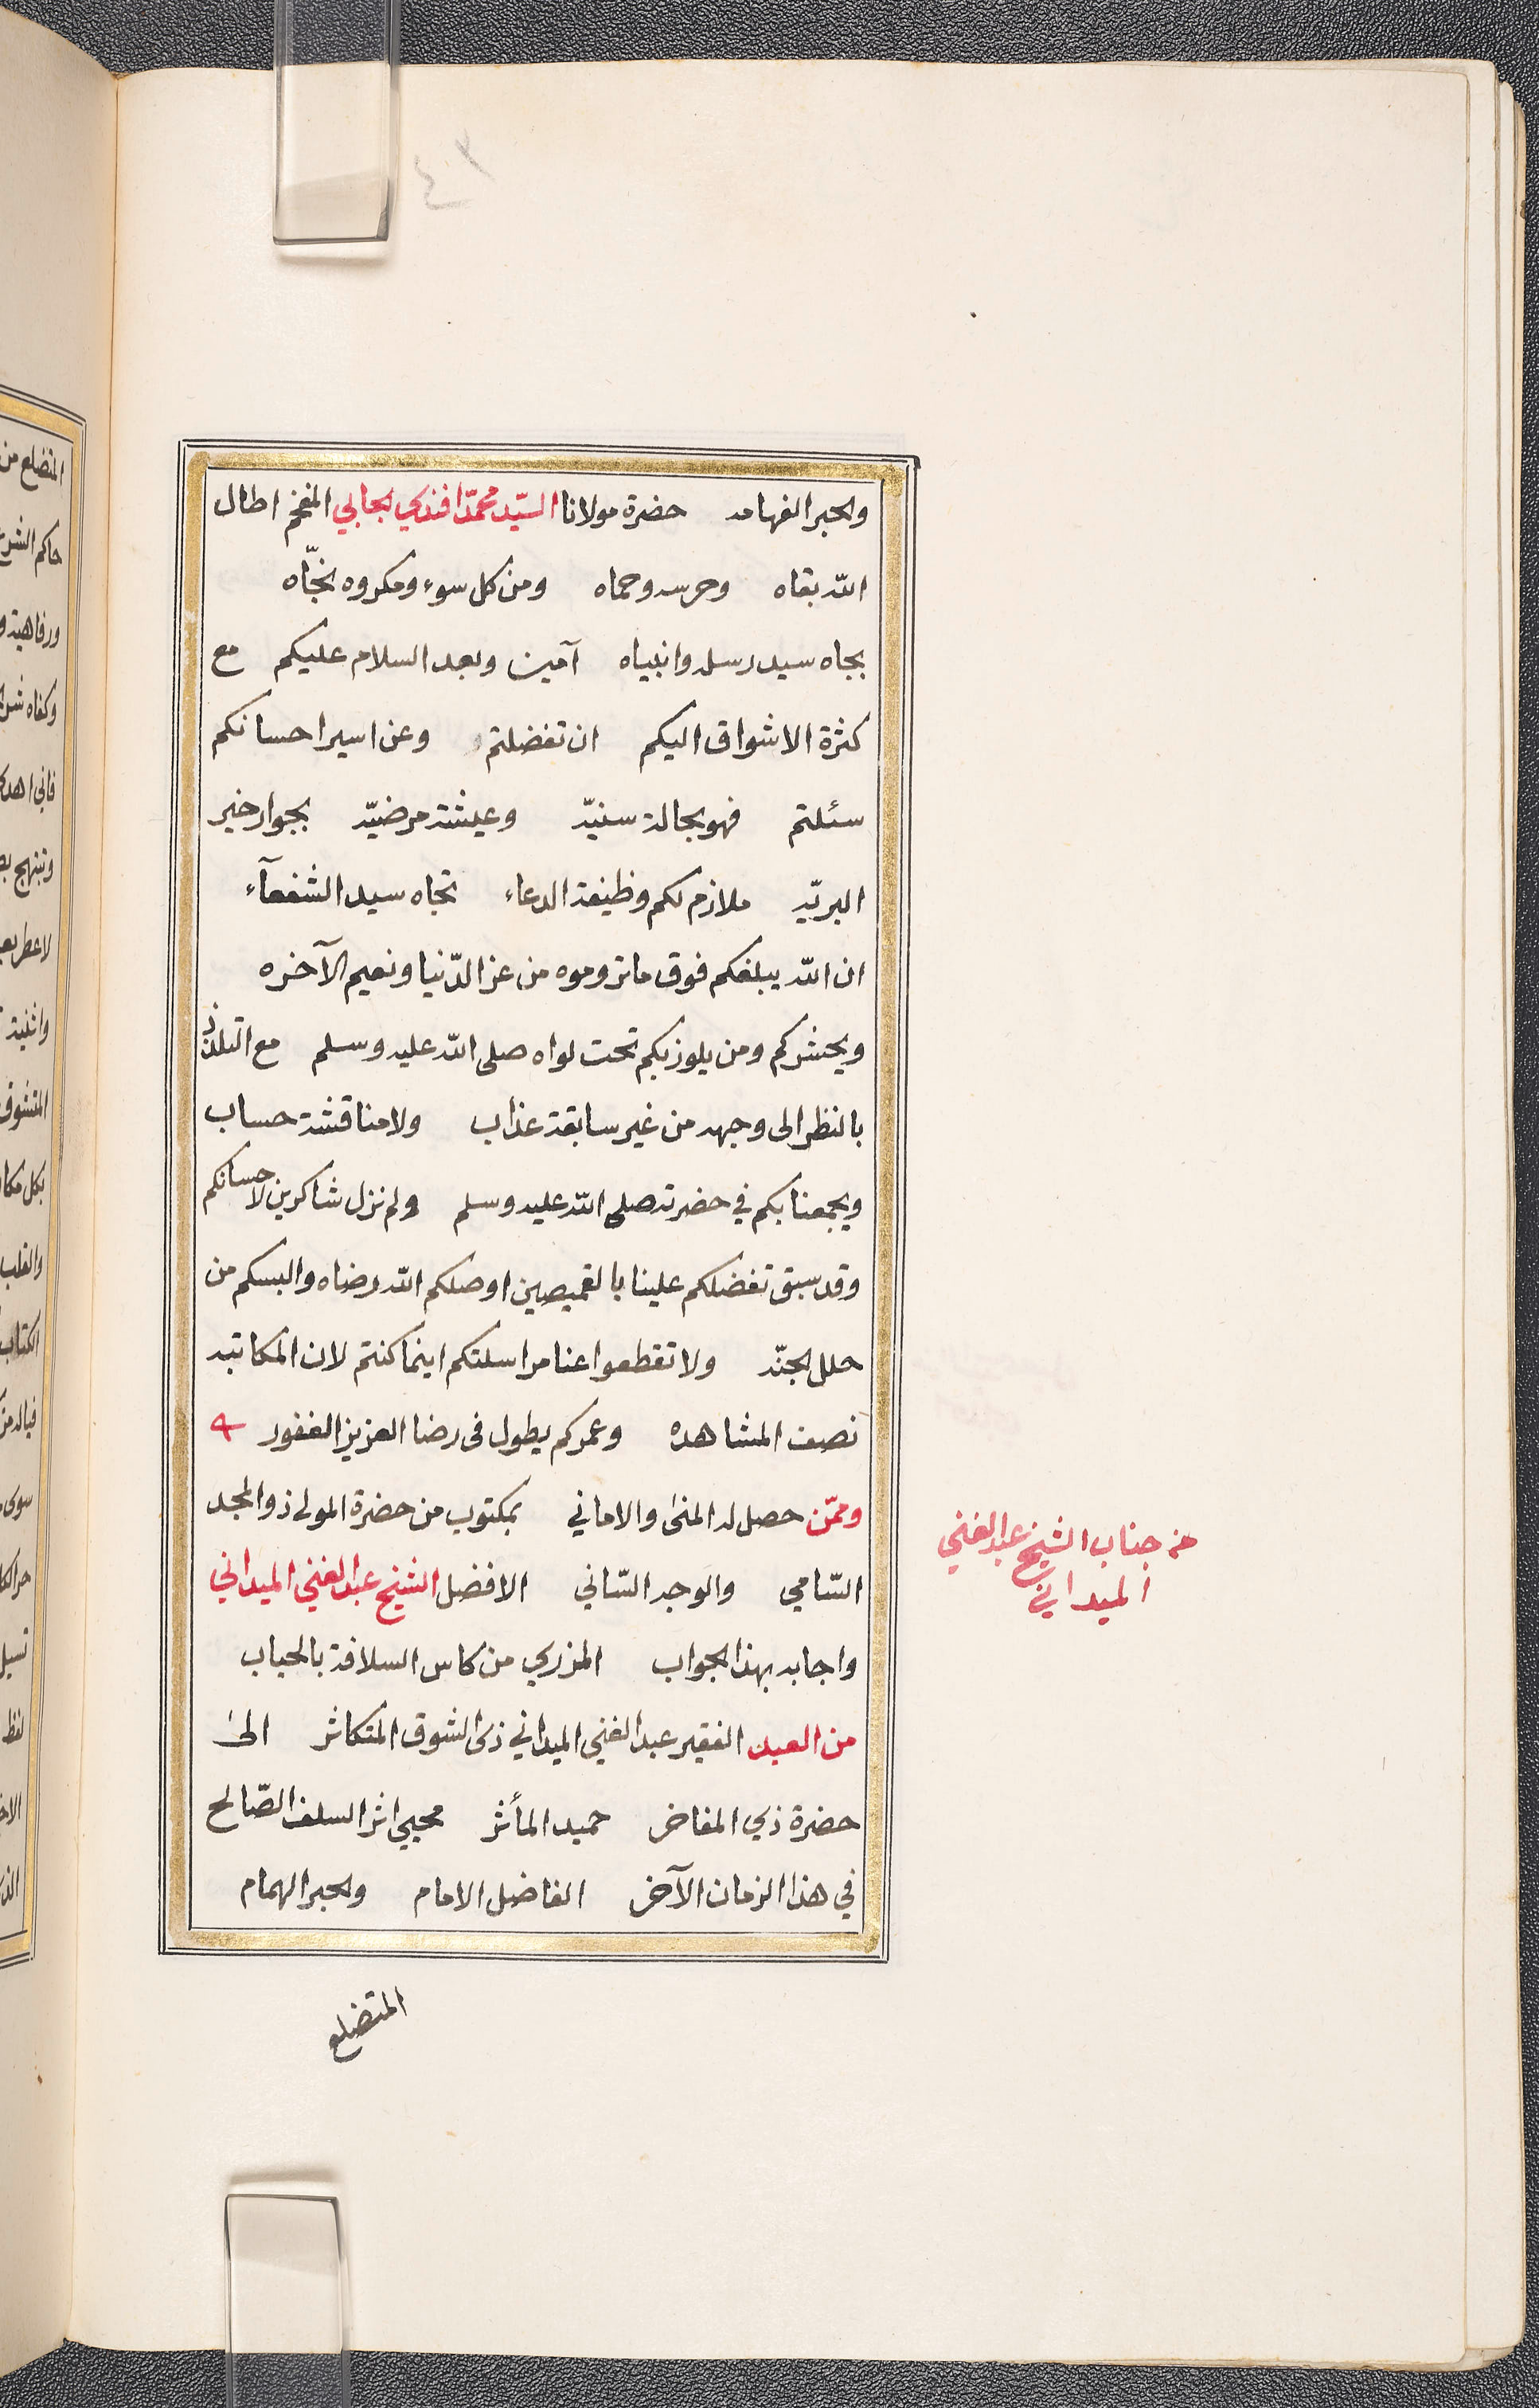 ٣٤
والحبر الفهامه حضرة مولانا السيّد محمّد افندي الجابي المفخم اطال
الله بقاه وحرسه وحماه ومن كل سوء ومكروه نجّاه
بجاه سيد رسله وانبياه آمين وبعد السلام عليكم مع
كثرة الاشواق اليكم ان تفضلتم وعن اسير احسانكم
سئلتم فهو بحالة سنيّه وعيشة مرضيّه بجوار خير
البريّه ملازم لكم وظيفة الدعاء تجاه سيد الشفعآء
ان الله يبلغكم فوق ما تروموه من عز الدّنيا ونعيم الآخره
ويحشركم ومن يلوذ بكم تحت لواه صلى الله عليه وسلم مع التلذذ
بالنظر الى وجهه من غير سابقة عذاب ولا مناقشة حساب
ويجمعنا بكم في حضرته صلى الله عليه وسلم ولم نزل شاكرين لاحسانكم
وقد سبق تفضلكم علينا بالقميصين اوصلكم الله رضاه والبسكم من
حلل الجنّه ولا تقطعوا عنا مراسلتكم اينما كنتم لان المكاتبه
نصف المشاهده وعمركم يطول فى رضا العزيز الغفور
وممّن حصل له المنى والاماني بمكتوب من حضرة المولى ذو المجد
السّامي والوجه السّاني الافضل الشيخ عبد الغني الميداني
واجابه بهذا الجواب المزري من كاس السلافة بالحباب
من العبد الفقير عبد الغني الميداني ذى الشوق المتكاثر الى
حضرة ذي المفاخر حميد المأثر محيي اثر السلف الصّالح
في هذا الزمان الآخر الفاضل الامام والحبر الهمام
المتضلع
من جناب الشيخ عبد الغني
الميداني